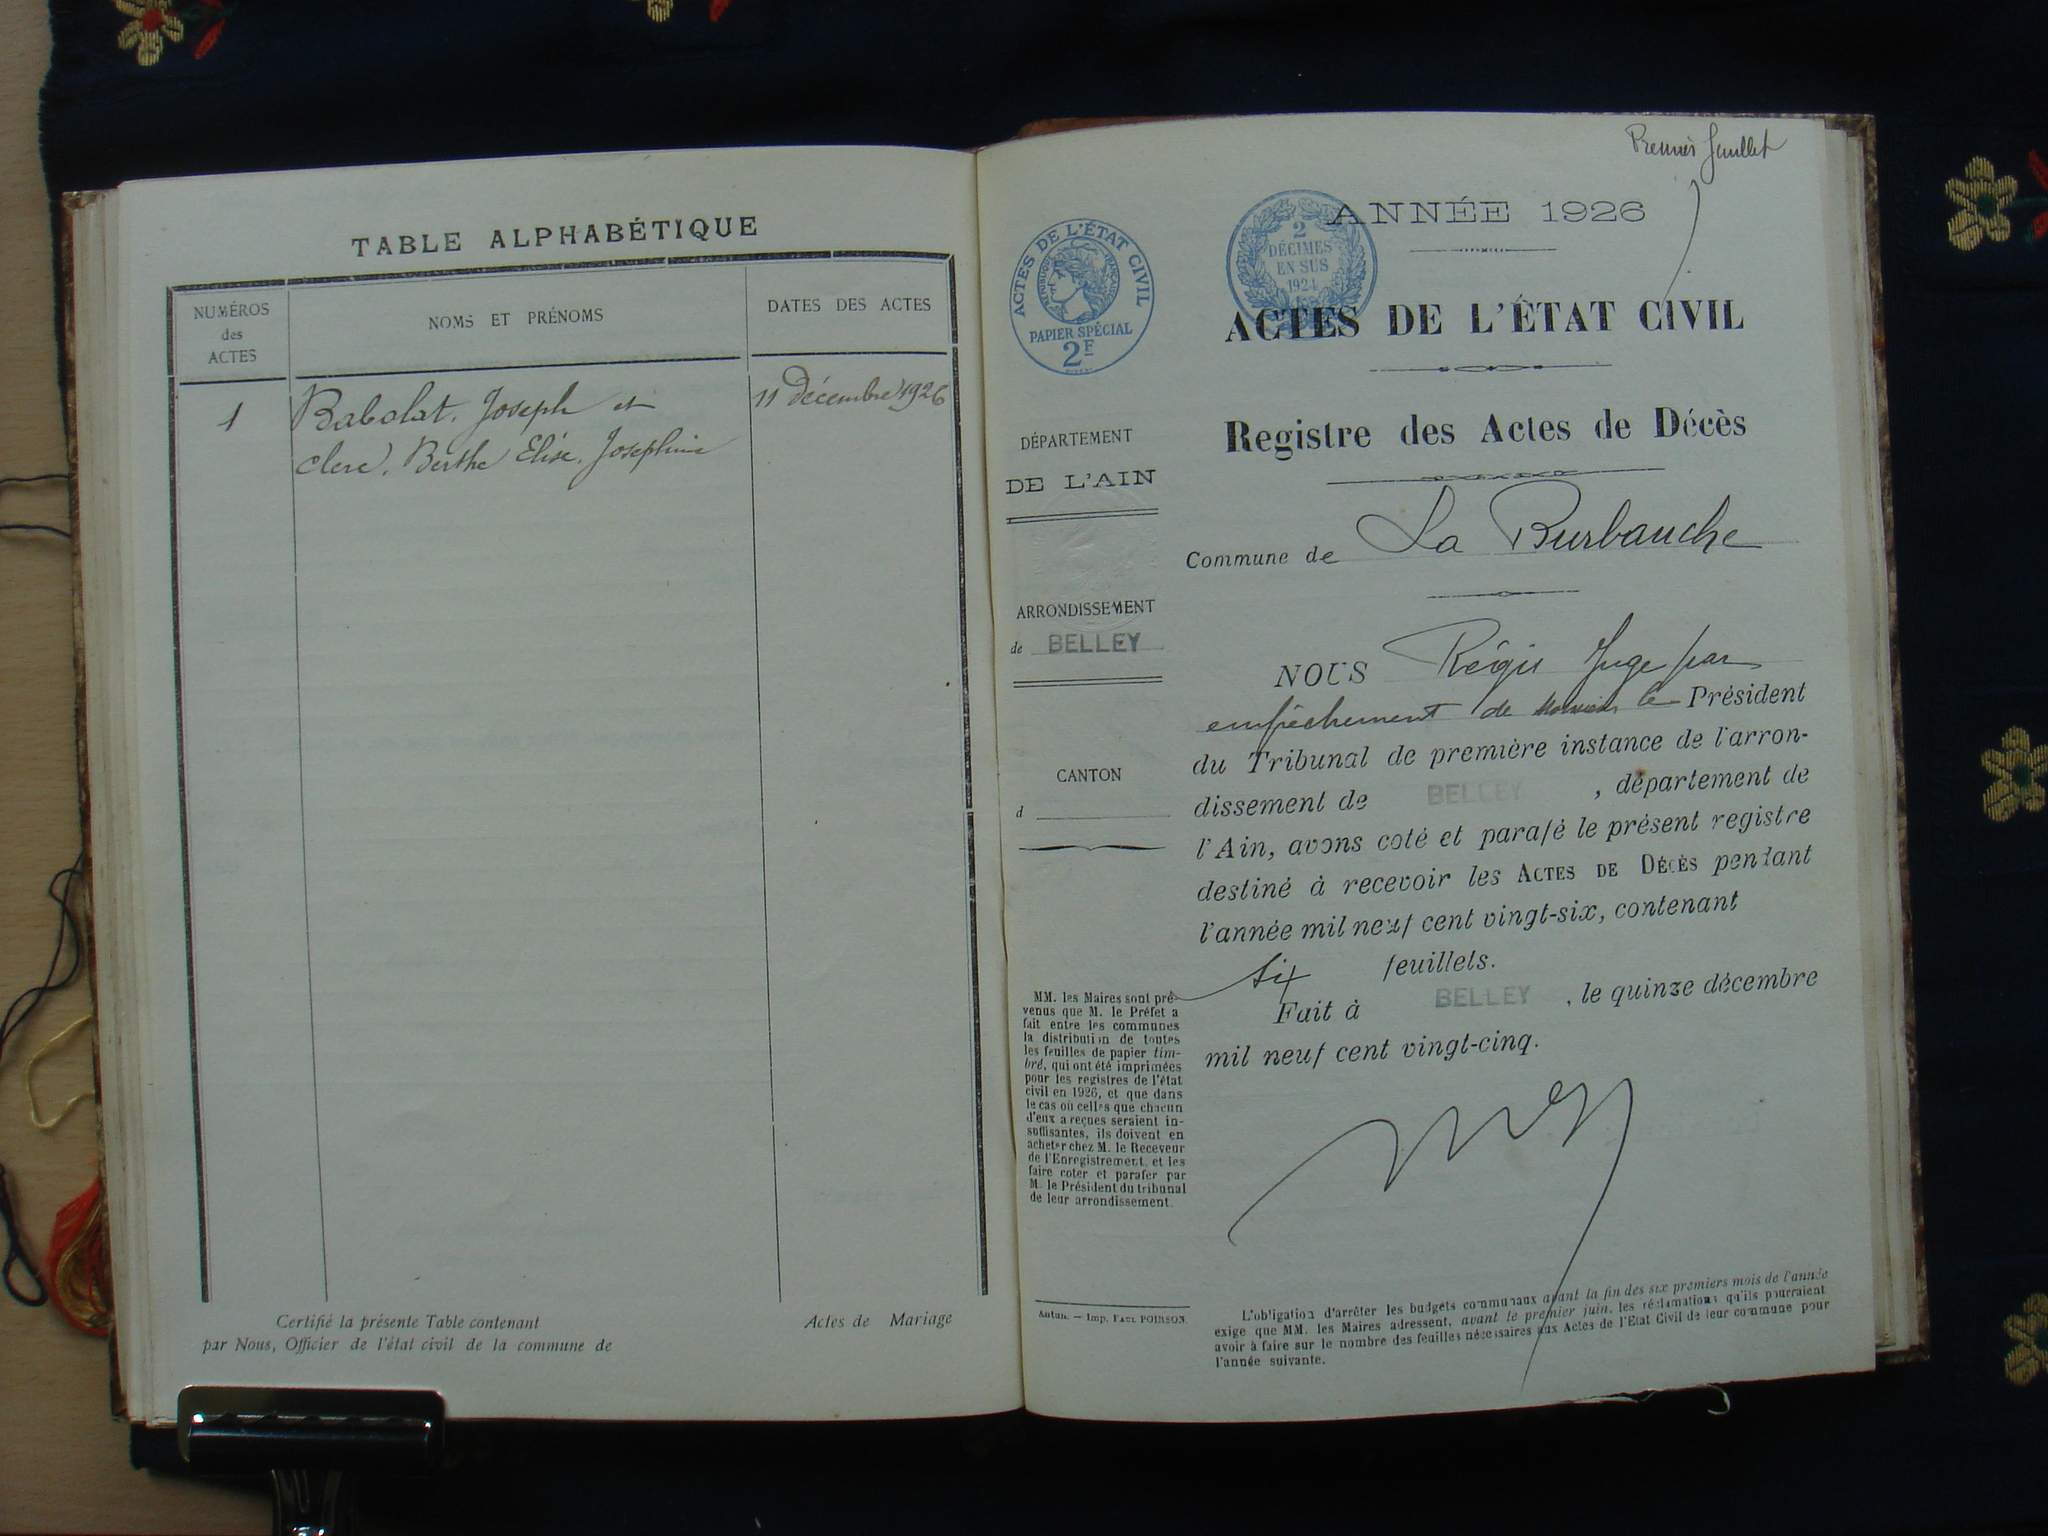 TABLE ALPHABÉTIQUE
NUMÉROS
des
ACTES
NOMS ET PRÉNOMS
DATES DES ACTES
1
Babolat, Joseph et
11 Décembre 1926
Clerc, Berthe Elise, Joséphine
Certifié la présente Table contenant
Actes de Mariage
par Nous, Officier de l'état civil de la commune de
Premier feuillet
ANNÉE 1926
ACTES DE L'ÉTAT CIVIL
RÉPUBLIQUE FRANÇAISE
PAPIER SPÉCIAL
2F
2
DÉCIMES
EN SUS
1924
ACTES DE L'ÉTAT CIVIL
Registre des Actes de Décès
DÉPARTEMENT
DE L'AIN
Commune de La Burbanche
ARRONDISSEMENT
de BELLEY
CANTON
d
NOUS Régis Juge par
empêchement de Monsieur le Président
du Tribunal de première instance de l'arron-
dissement de BELLEY, département de
l'Ain, avons coté et parafé le présent registre
destiné à recevoir les ACTES DE DÉCÈS pendant
l'année mil neuf cent vingt-six, contenant
six feuillets.
Fait à BELLEY, le quinze décembre
mil neuf cent vingt-cinq.
MM. les Maires sont pré-
venus que M. le Préfet a
fait entre les communes
la distribution de toutes
les feuilles de papier tim-
bré, qui ont été imprimées
pour les registres de l'état
civil en 1926, et que dans
le cas où celles que chacun
d'eux a reçues seraient in-
suffisantes, ils doivent en
acheter chez M. le Receveur
de l'Enregistrement, et les
faire coter et parafer par
M. le Président du tribunal
de leur arrondissement.
Autun. — Imp. Paul POIRSON.
L'obligation d'arrêter les budgets communaux avant la fin des six premiers mois de l'année
exige que MM. les Maires adressent, avant le premier juin, les réclamations qu'ils pourraient
avoir à faire sur le nombre des feuilles nécessaires aux Actes de l'Etat Civil de leur commune pour
l'année suivante.